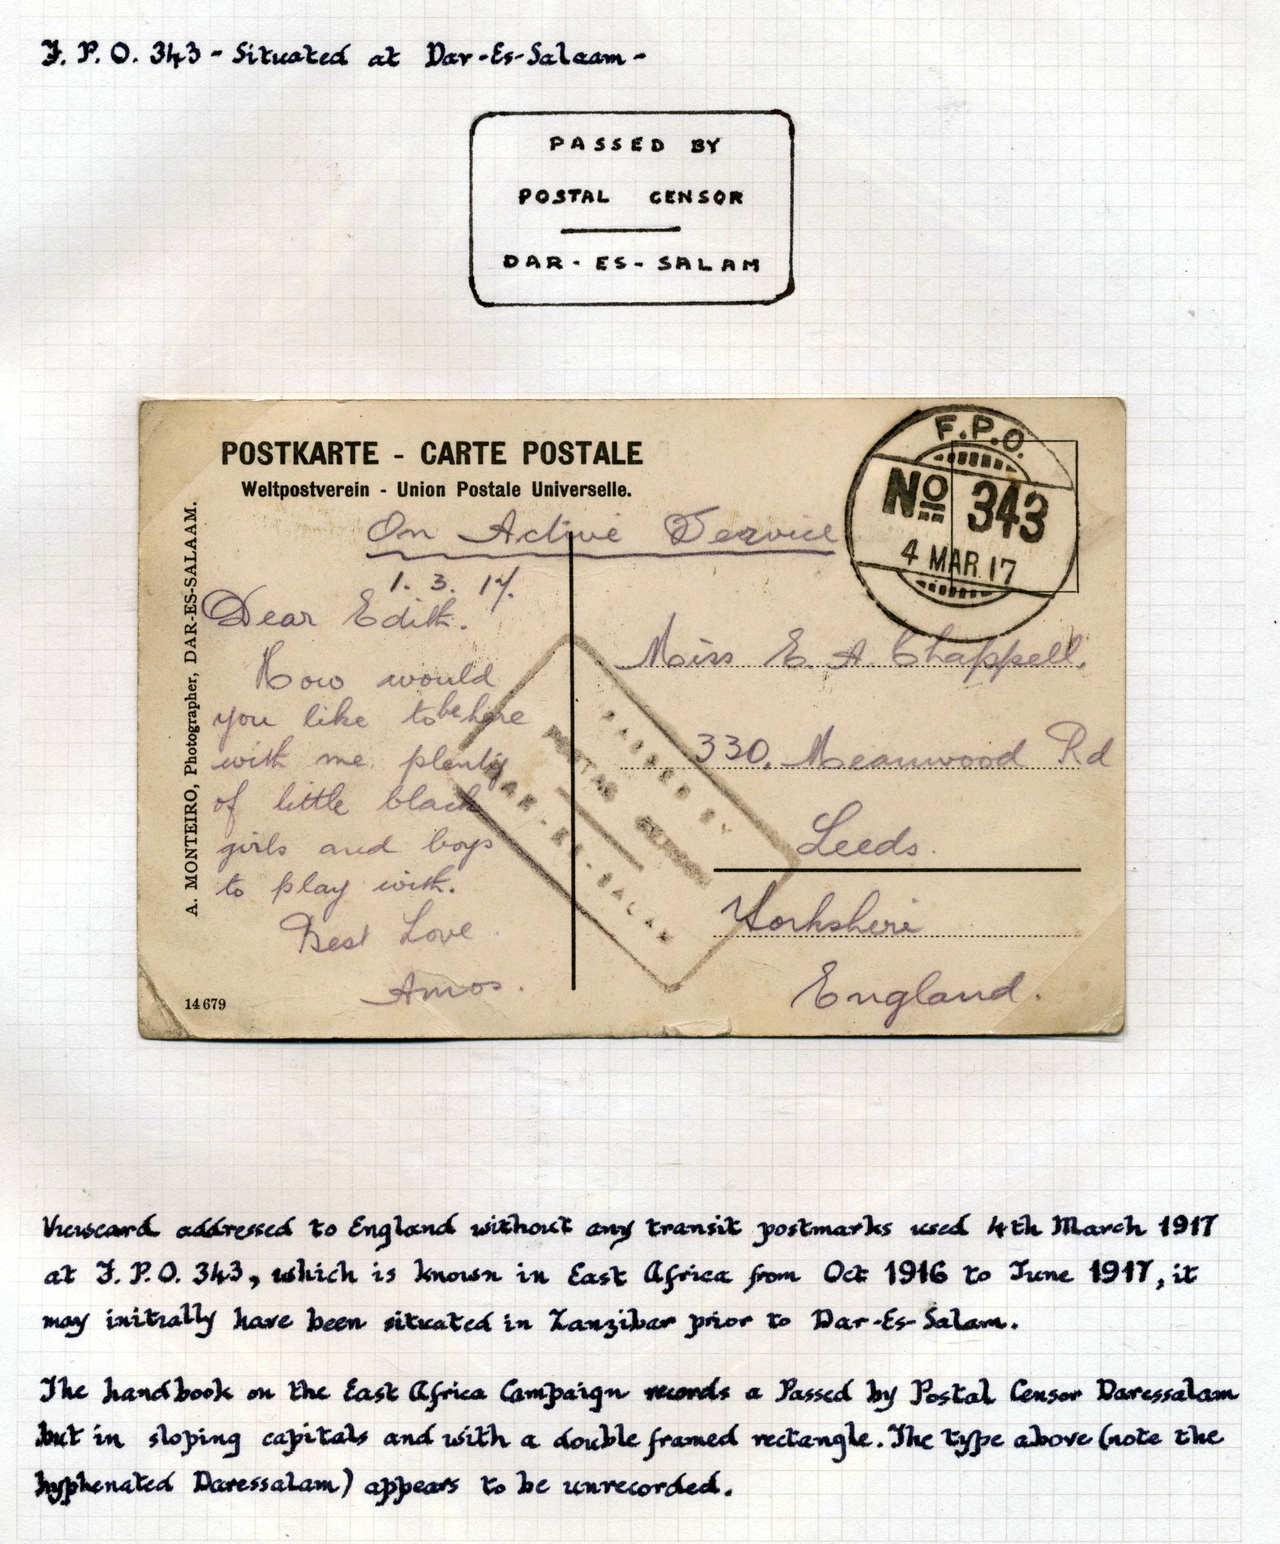 F. P. O. 343 - Situated at Dar-Es-Salaam -
PASSED BY
POSTAL CENSOR
DAR-ES-SALAM
POSTKARTE - CARTE POSTALE
Weltpostverein - Union Postale Universelle.
F.P.O.
No 343
4 MAR. 17
On Active Service
1. 3. 17.
Dear Edith.
How would
you like to be here
with me plenty
of little black
girls and boys
to play with.
Best Love
Amos.
A. MONTEIRO, Photographer, DAR-ES-SALAAM.
14679
PASSED BY
POSTAL CENSOR
DAR-ES-SALAM
Miss E. A. Chappell,
330. Meanwood Rd
Leeds.
Yorkshire
England.
Viewcard addressed to England without any transit postmarks used 4th March 1917
at F. P. O. 343, which is known in East Africa from Oct 1916 to June 1917, it
may initially have been situated in Zanzibar prior to Dar-Es-Salam.
The handbook on the East Africa Campaign records a Passed by Postal Censor Daressalam
but in sloping capitals and with a double framed rectangle. The type above (note the
hyphenated Daressalam) appears to be unrecorded.